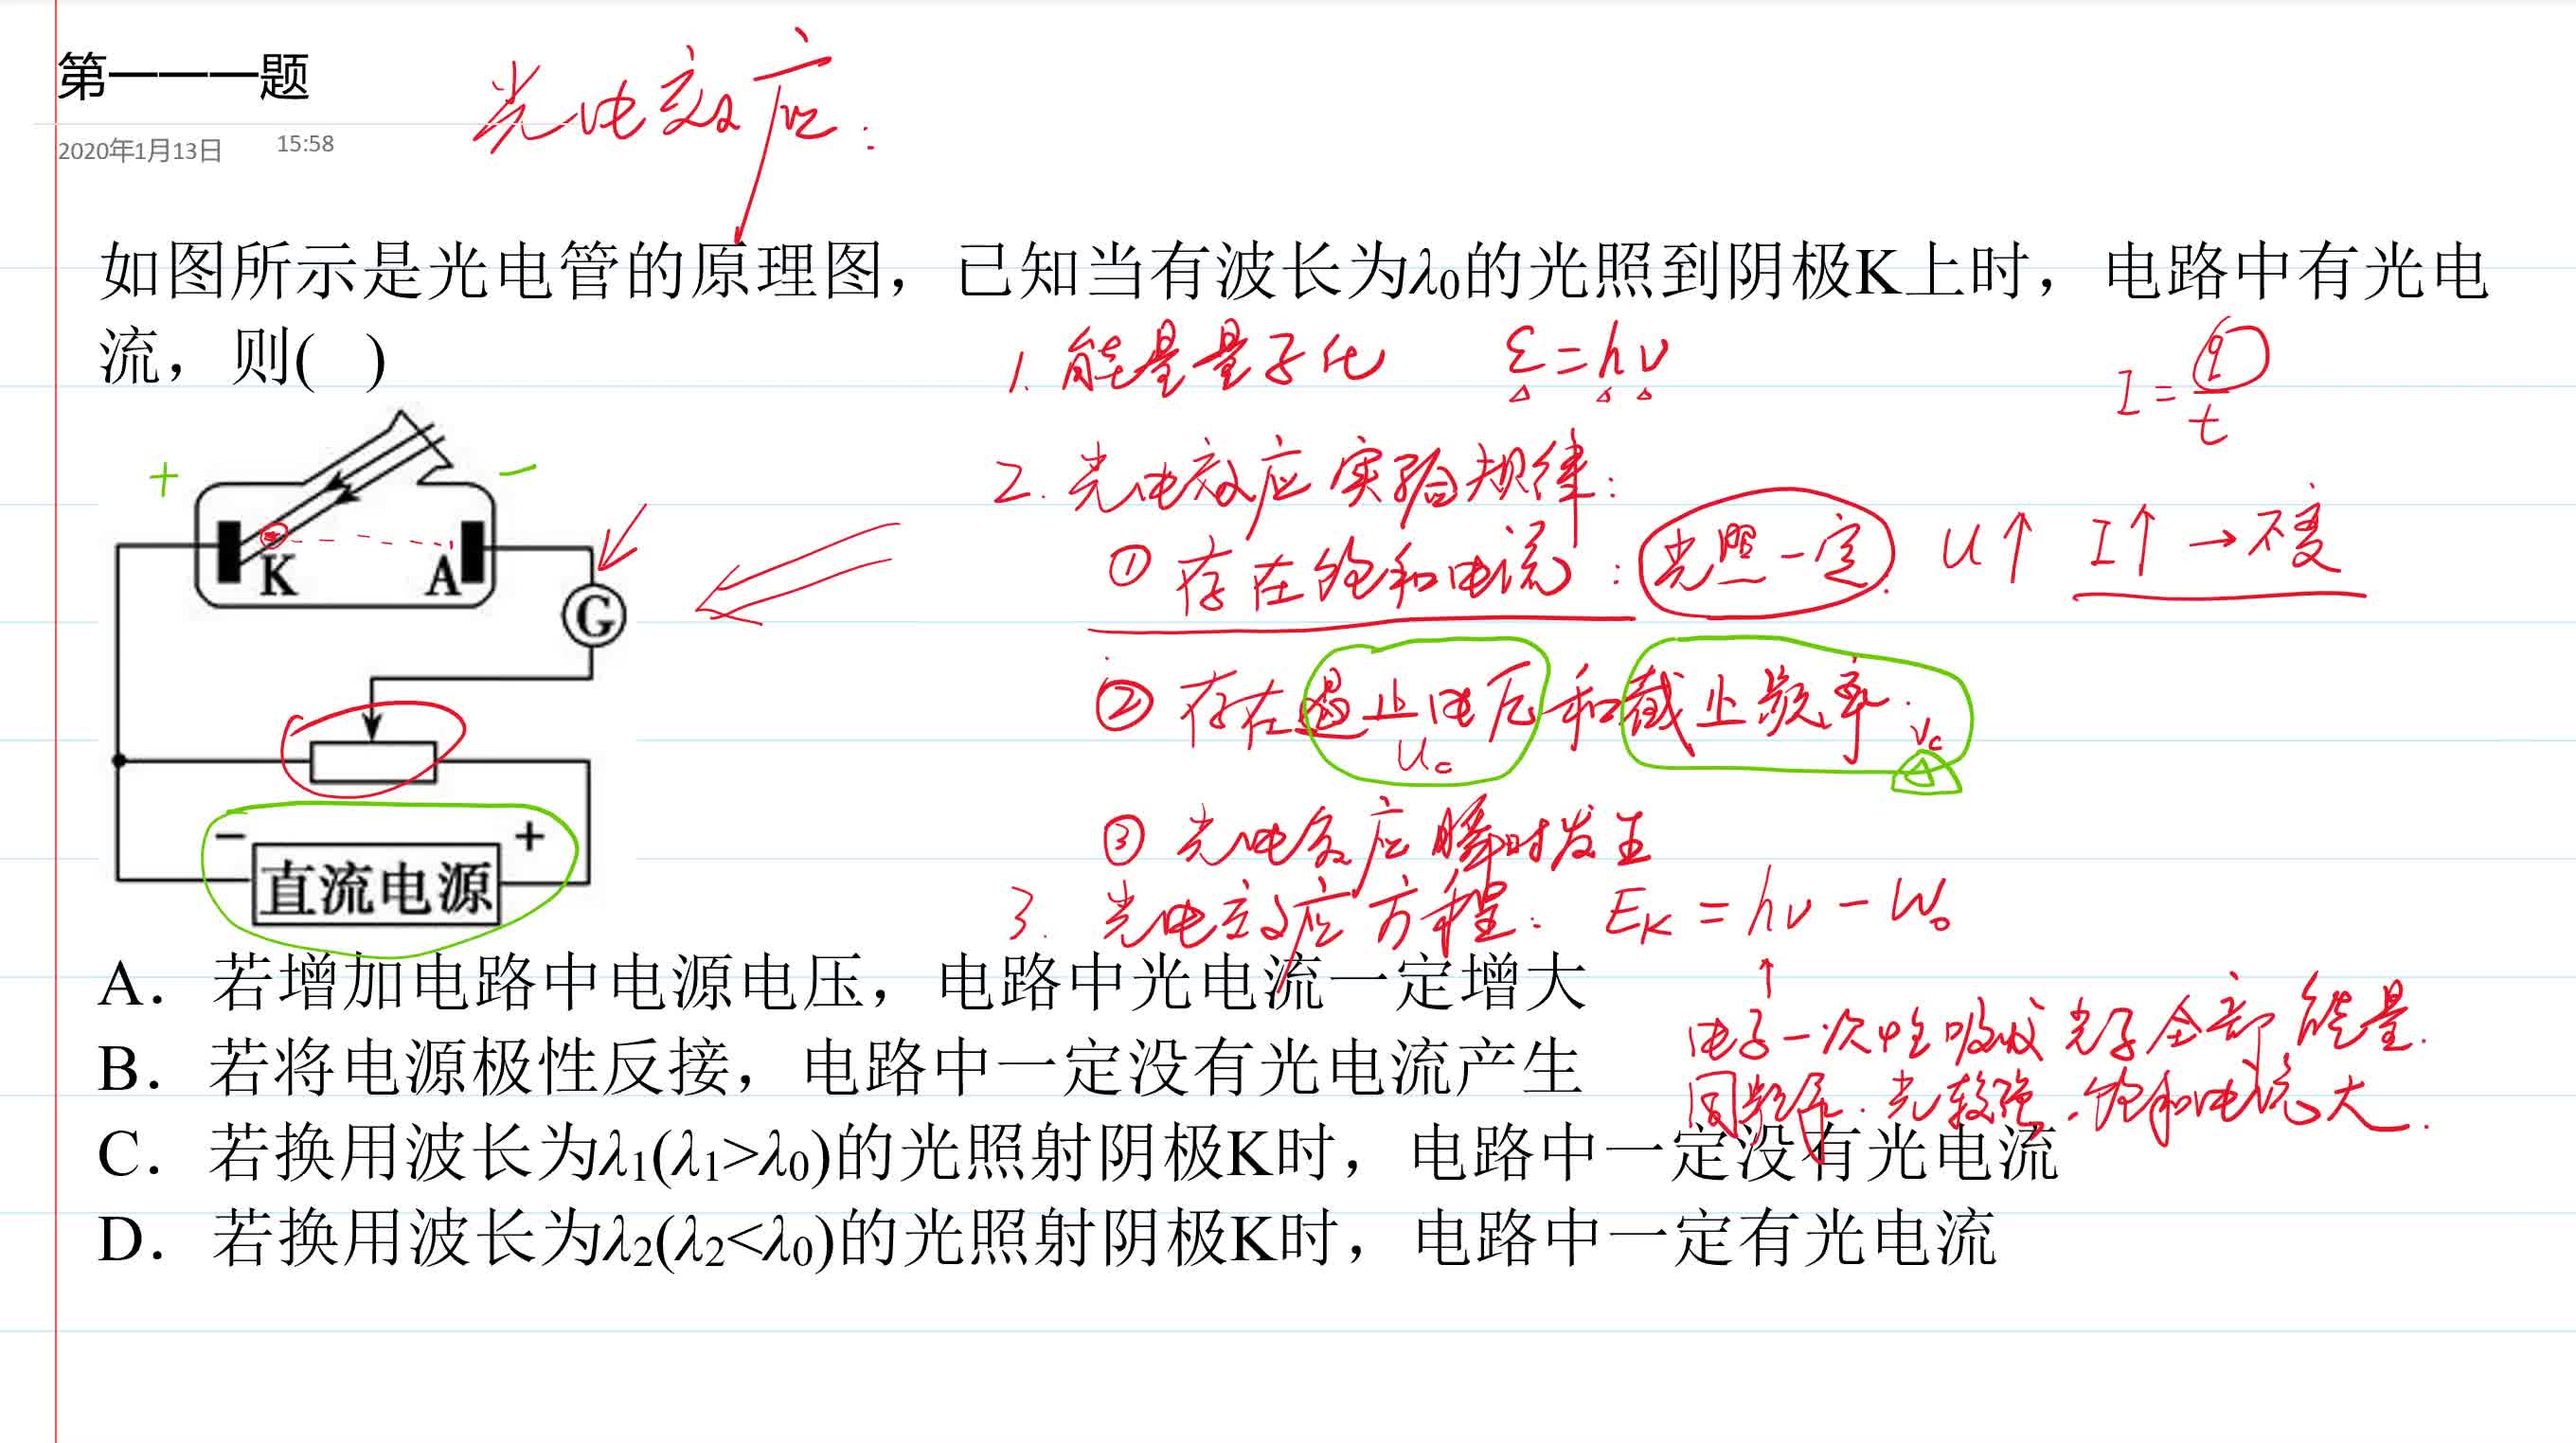 第一一一题
2020年1月13日 15:58
光电效应:
如图所示是光电管的原理图，已知当有波长为λ0的光照到阴极K上时，电路中有光电
流，则( )
1. 能量量子化 ε=hν
I=q/t
2. 光电效应实验规律:
① 存在饱和电流: 光照一定. U↑ I↑ →不变
② 存在遏止电压和截止频率.
Uc νc
③ 光电效应瞬时发生
3. 光电效应方程: EK = hν - W0
电子一次性吸收光子全部能量.
同频率. 光较强. 饱和电流大.
+ -
K A
G
- +
直流电源
A. 若增加电路中电源电压，电路中光电流一定增大
B. 若将电源极性反接，电路中一定没有光电流产生
C. 若换用波长为λ1(λ1>λ0)的光照射阴极K时，电路中一定没有光电流
D. 若换用波长为λ2(λ2<λ0)的光照射阴极K时，电路中一定有光电流